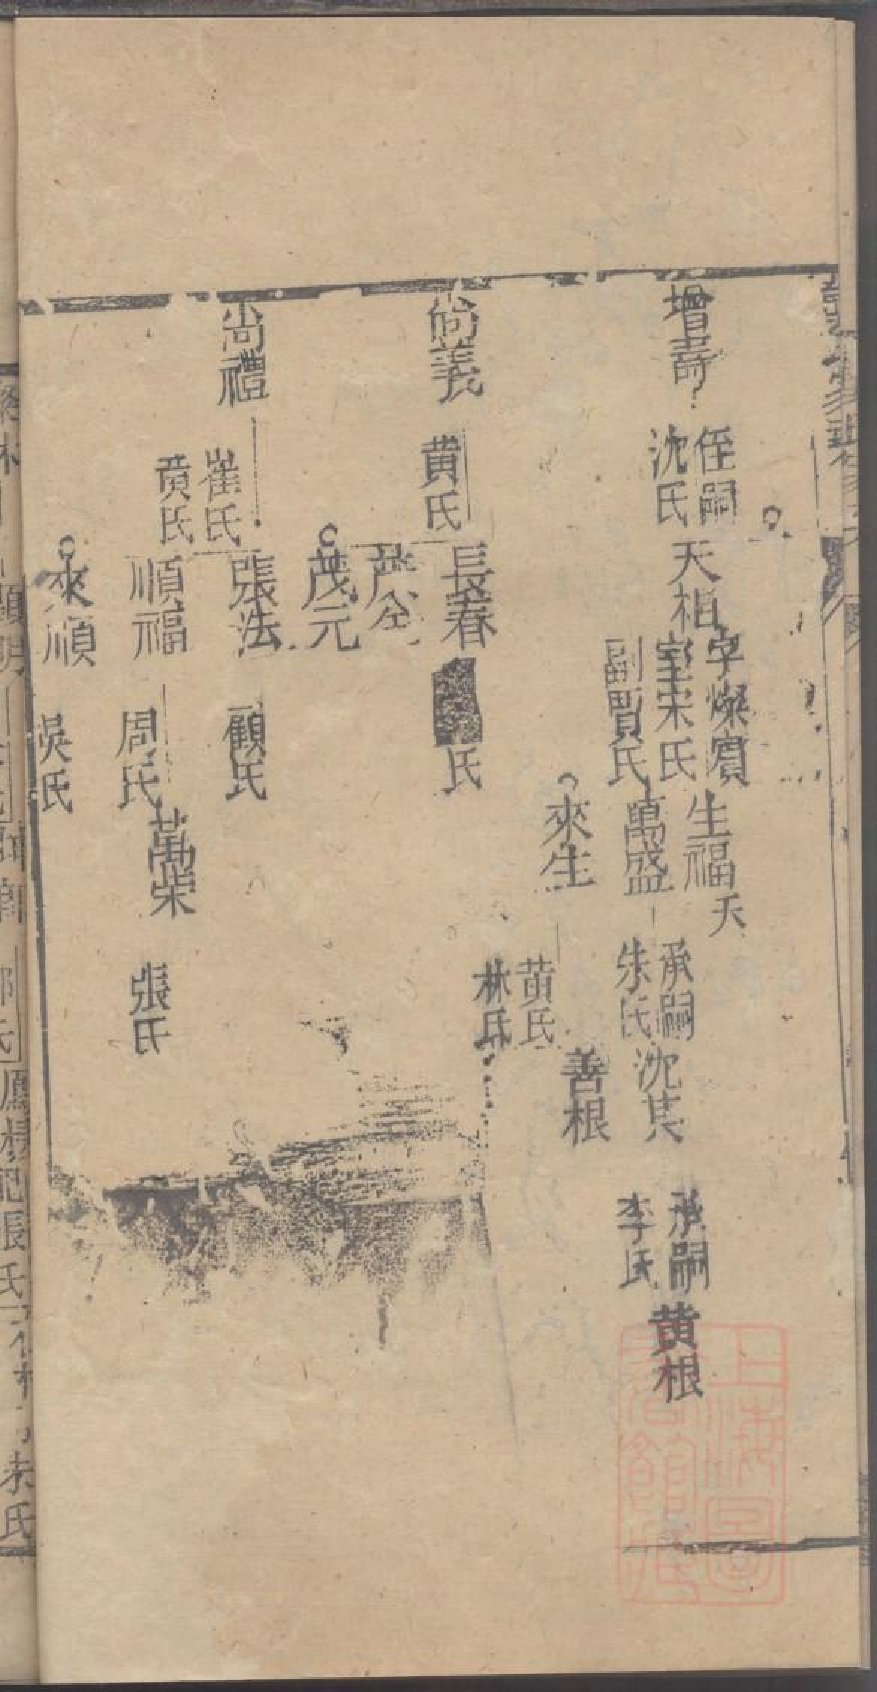 增壽
侄嗣
沈氏
天相
字燦賓
室宋氏
副賈氏
生福天
萬盛
來生
承嗣
朱氏
黄氏
林氏
沈其
善根
承嗣
李氏
黄根
尚義
黄氏
長春
氏
茂全
茂元
尚禮
崔氏
黄氏
張法
顧氏
順福
周氏
萬荣
張氏
來順
吳氏
上海圖
書館藏